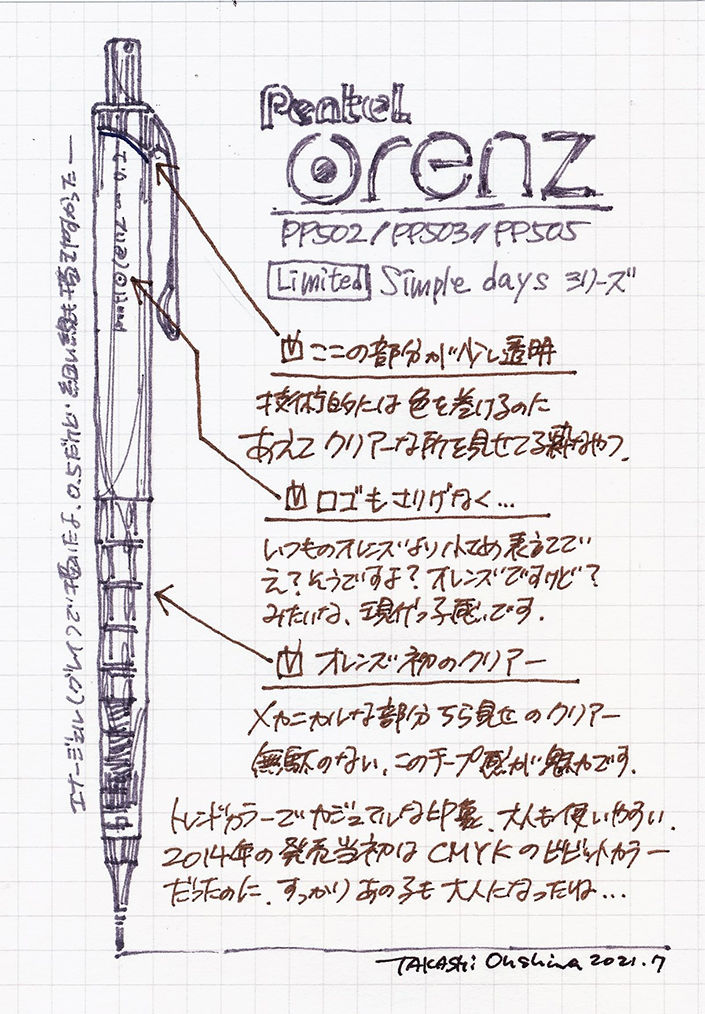 Pentel
orenz
PP502/PP503/PP505
Limited Simple days シリーズ
ここの部分が少し透明
技術的には色を巻けるのに
あえてクリアーな所を見せてる粋なやつ.
ロゴもさりげなく…
いつものオレンズより小さめ表記で
え?そうですよ?オレンズですけど?
みたいな、現代っ子感です.
オレンズ初のクリアー
メカニカルな部分チラ見せのクリアー
無駄のない、このテープ感が魅力です.
トレンドカラーでカジュアルな印象、大人も使いやすい.
2014年の発売当初はCMYKのビビットカラー
だったのに、すっかりあの子も大人になったね…
TAKASHi Ohshima 2021.7
エナージェル(グレイ)で描いたよ. 0.5だけど、細い線も描けた